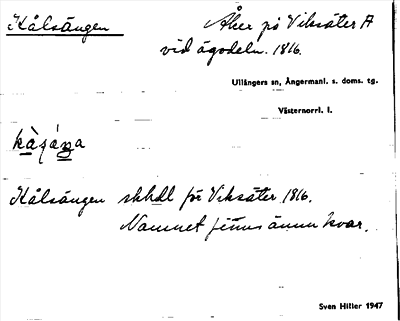 Kålsängen
Åker på Viksäter A
vid ägodeln. 1816.
Ullångers sn, Ångermanl. s. doms. tg.
Västernorrl. l.
Kålsängen skhdl för Viksäter 1816.
Namnet finns ännu kvar.
Sven Hitler 1947